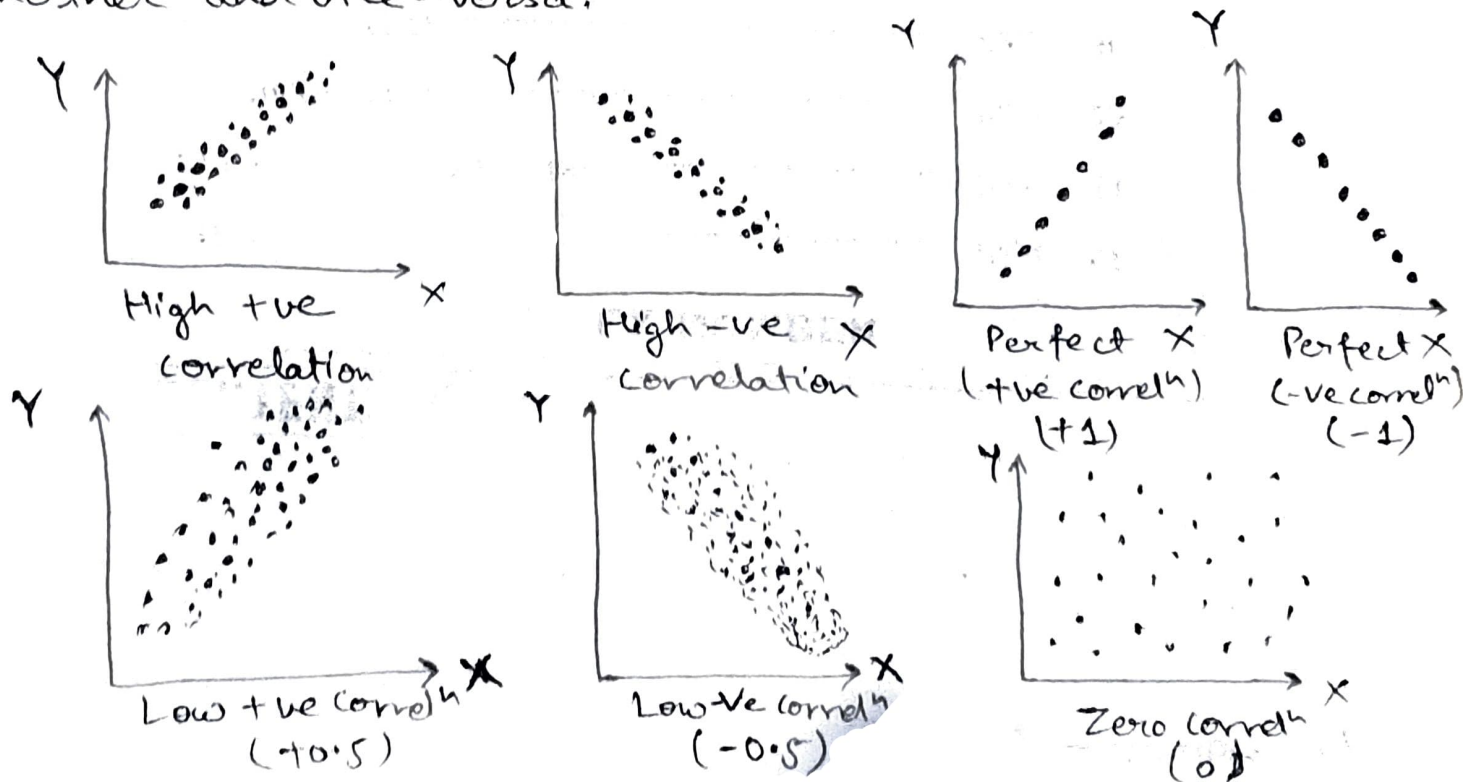 and vice-versa.
Y
X
High +ve
correlation
Y
X
High -ve
correlation
Y
Perfect X
(+ve correlⁿ)
(+1)
Y
Perfect X
(-ve correlⁿ)
(-1)
Y
X
Low +ve correlⁿ
(+0.5)
Y
X
Low -Ve correlⁿ
(-0.5)
Y
X
Zero correlⁿ
(0)